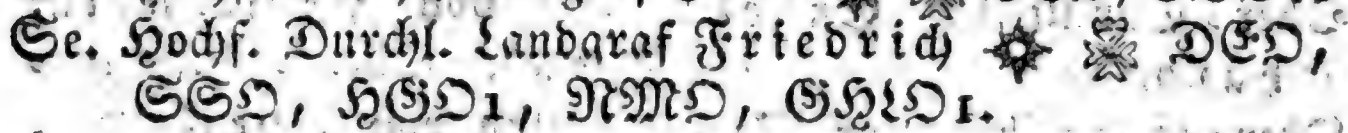 Se. Hochf. Durchl. Landgraf Friedrich DEO,
SSO, HGO1, NMO, GHLO1.